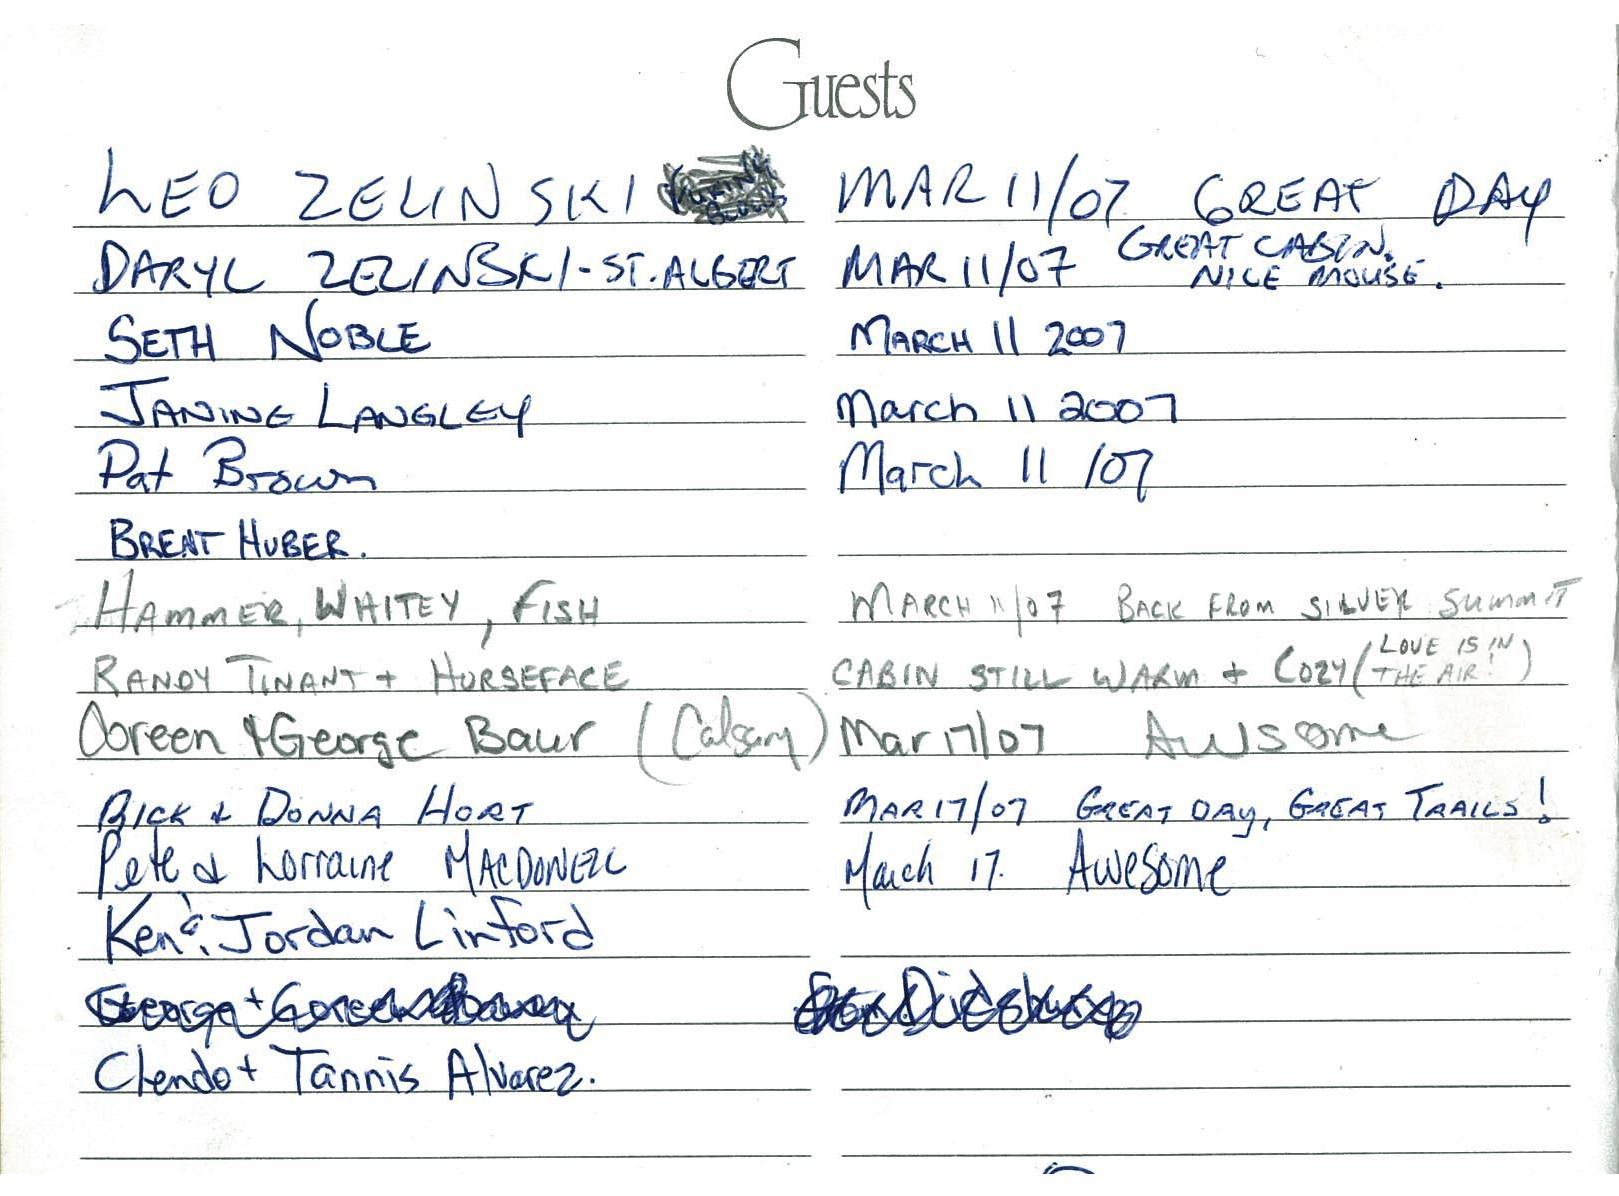 Guests
LEO ZELINSKI MAR 11/07 GREAT DAY
DARYL ZELINSKI - ST. ALBERT MAR 11/07 GREAT CABIN. NICE MOUSE.
SETH NOBLE MARCH 11 2007
JANINE LANGLEY March 11 2007
Pat Brown March 11 /07
BRENT HUBER.
HAMMER, WHITEY, FISH MARCH 11/07 BACK FROM SILVER SUMMIT
RANDY TINANT + HORSEFACE CABIN STILL WARM + COZY (LOVE IS IN THE AIR!)
Doreen & George Baur (Calgary) Mar 17/07 Awsome
RICK & DONNA HORT MAR 17/07 GREAT DAY, GREAT TRAILS!
Pete & Lorraine MACDONELL March 17. Awesome
Ken & Jordan Linford
George + Didsbury
Clendo + Tannis Alvarez.